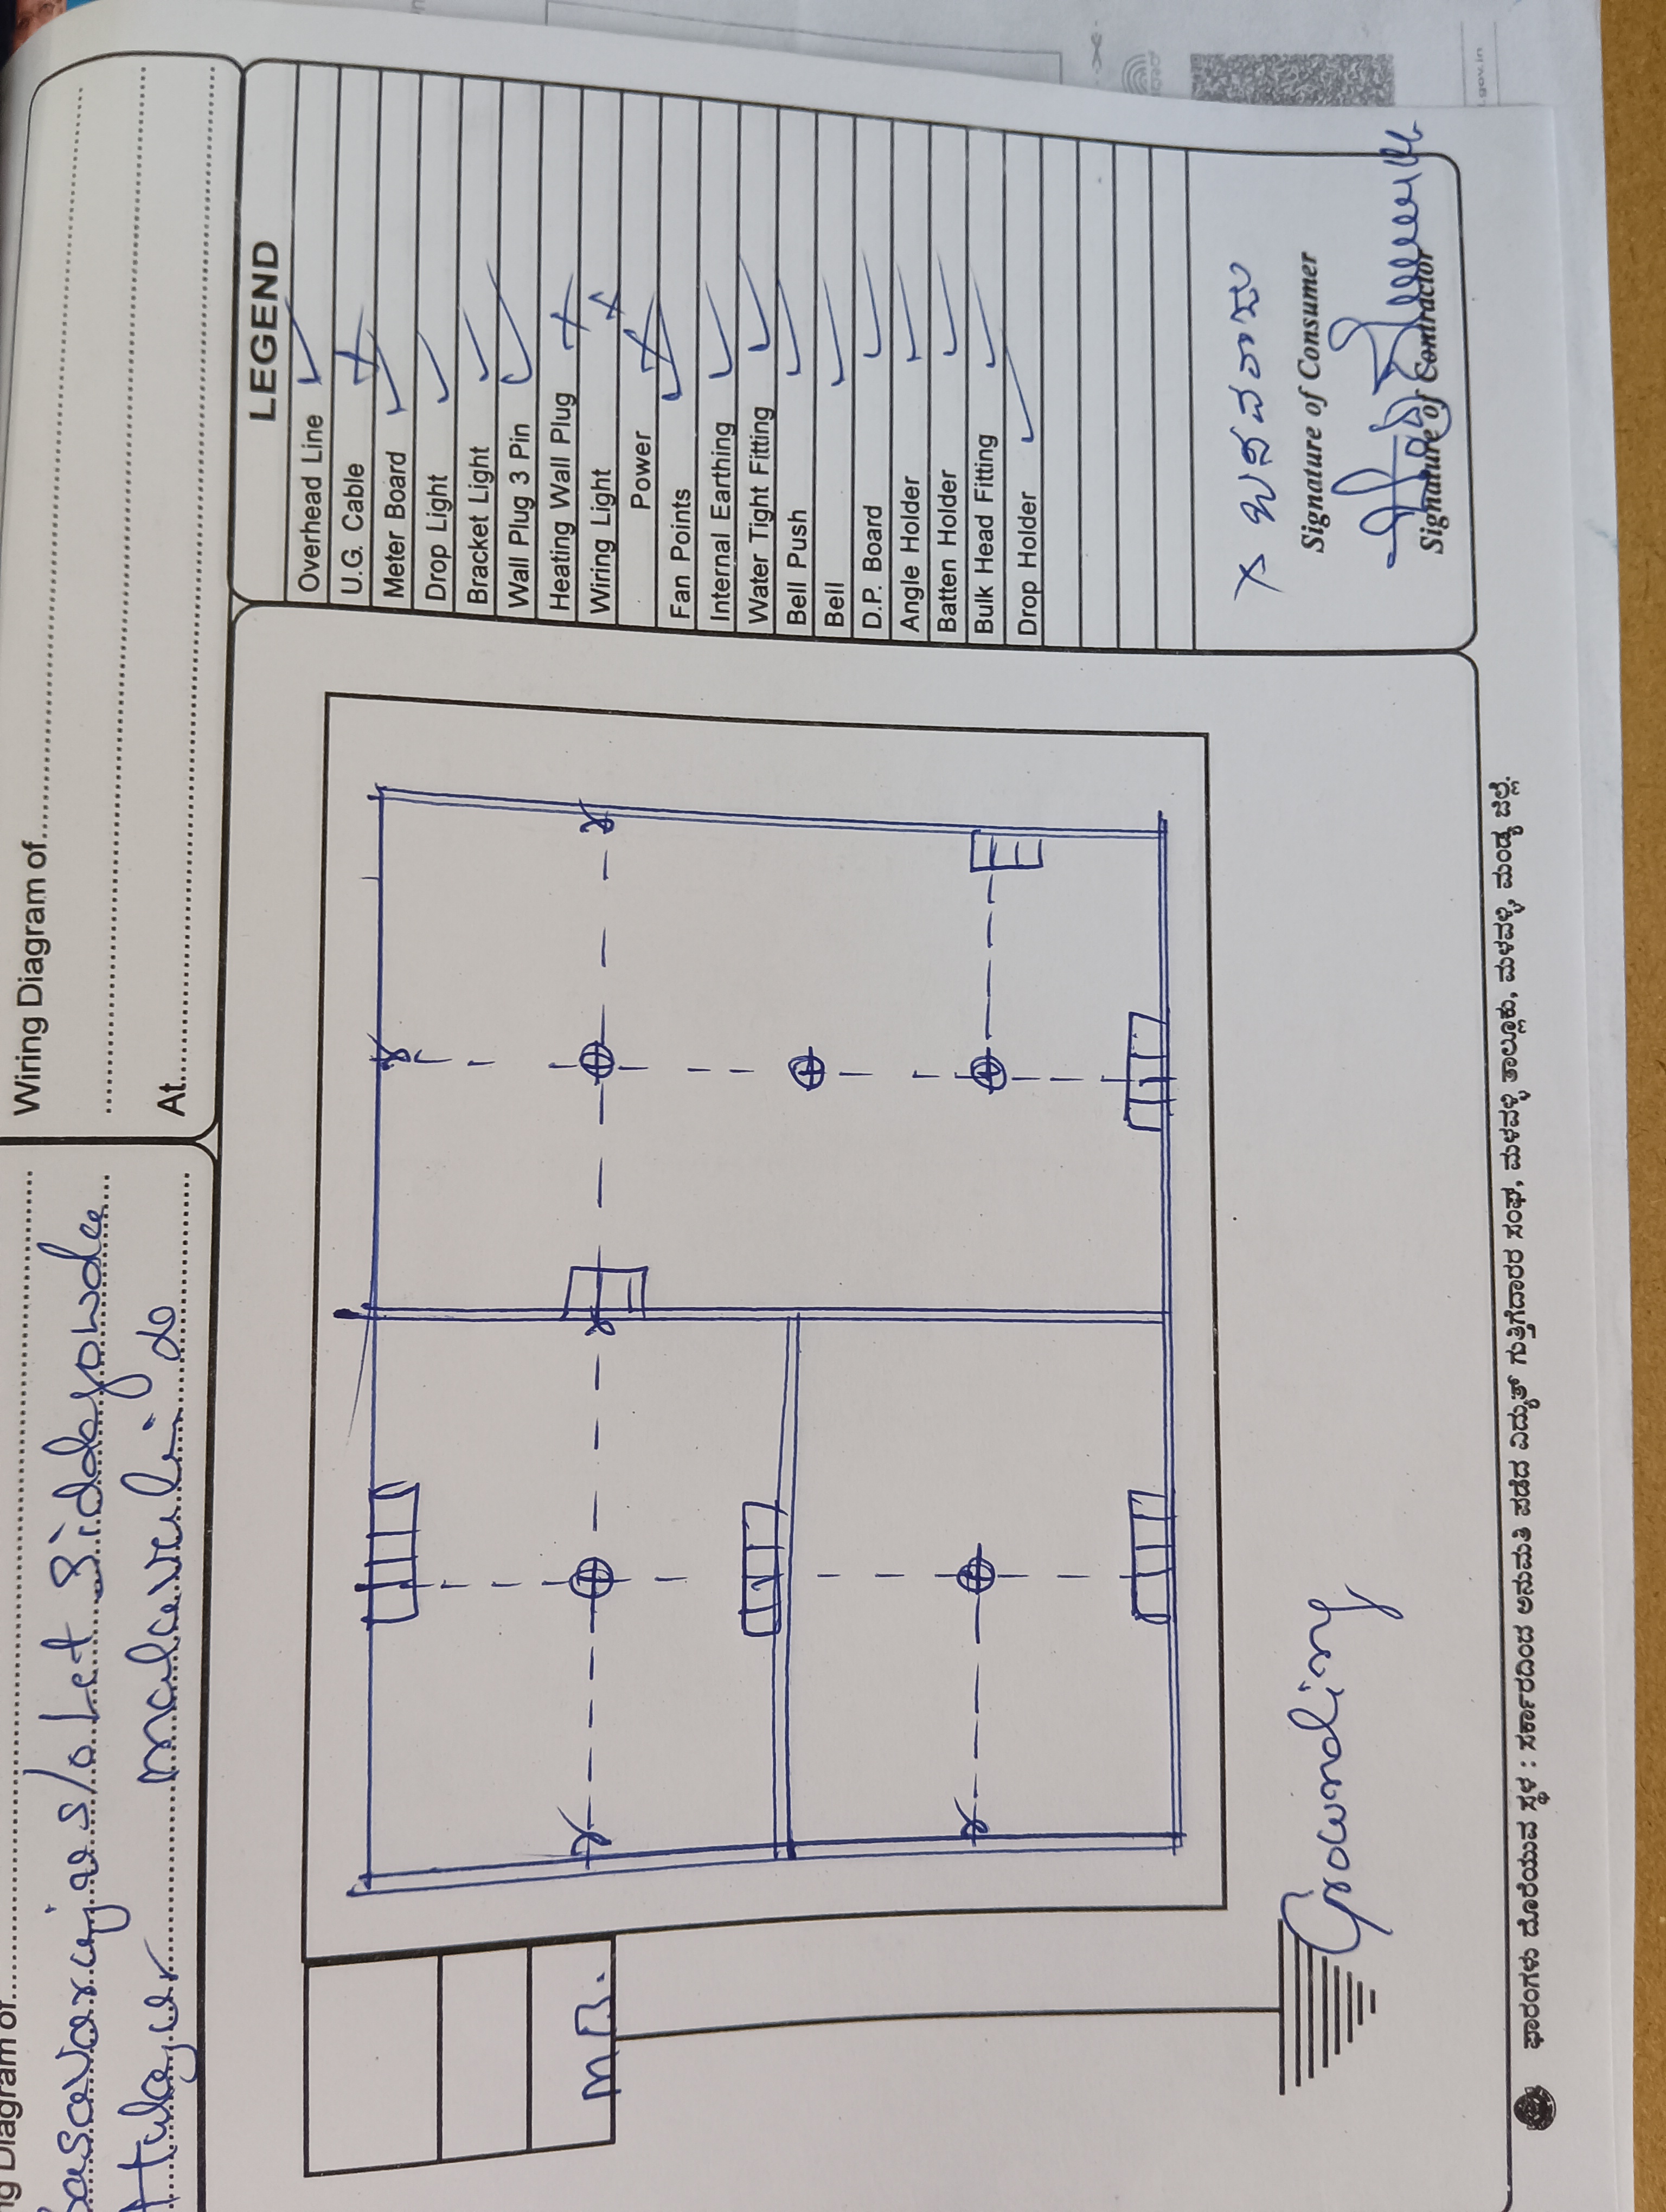 Wiring Diagram of
s/o Let Siddegowda
malavali
Wiring Diagram of
At
LEGEND
Overhead Line
U.G. Cable
Meter Board
Drop Light
Bracket Light
Wall Plug 3 Pin
Heating Wall Plug
Wiring Light
Power
Fan Points
Internal Earthing
Water Tight Fitting
Bell Push
Bell
D.P. Board
Angle Holder
Batten Holder
Bulk Head Fitting
Drop Holder
X ಬಸವರಾಜು
Signature of Consumer
Signature of Contractor
M B.
Grounding
ಫಾರಂಗಳು ದೊರೆಯುವ ಸ್ಥಳ : ಸರ್ಕಾರದಿಂದ ಅನುಮತಿ ಪಡೆದ ವಿದ್ಯುತ್ ಗುತ್ತಿಗೆದಾರರ ಸಂಘ, ಮಳವಳ್ಳಿ ತಾಲ್ಲೂಕು, ಮಳವಳ್ಳಿ, ಮಂಡ್ಯ ಜಿಲ್ಲೆ.
.gov.in